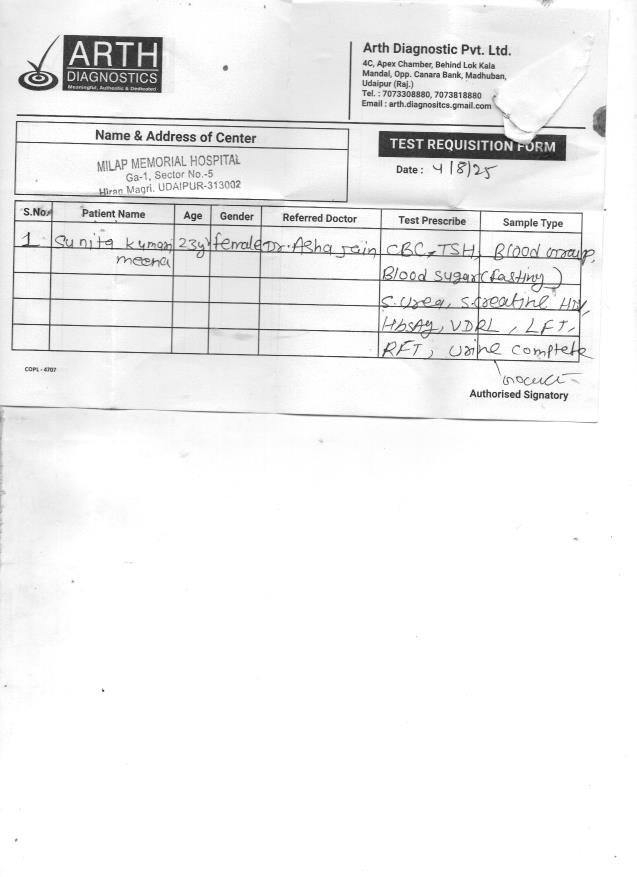 ARTH
DIAGNOSTICS
Meaningful, Authentic & Dedicated
Arth Diagnostic Pvt. Ltd.
4C, Apex Chamber, Behind Lok Kala
Mandal, Opp. Canara Bank, Madhuban,
Udaipur (Raj.)
Tel. : 7073308880, 7073818880
Email : arth.diagnositcs.gmail.com
Name & Address of Center
MILAP MEMORIAL HOSPITAL
Ga-1, Sector No.-5
Hiran Magri. UDAIPUR-313002
TEST REQUISITION FORM
Date : 4/8/25
S.No. Patient Name Age Gender Referred Doctor Test Prescribe Sample Type
1 Sunita Kumari 23yr female Dr. Asha Jain CBC, TSH, Blood Group,
meena
Blood sugar (fasting)
S. urea, S. creatine HIV,
HbsAg, VDRL, LFT,
RFT, urine complete
COPL - 4707
Authorised Signatory